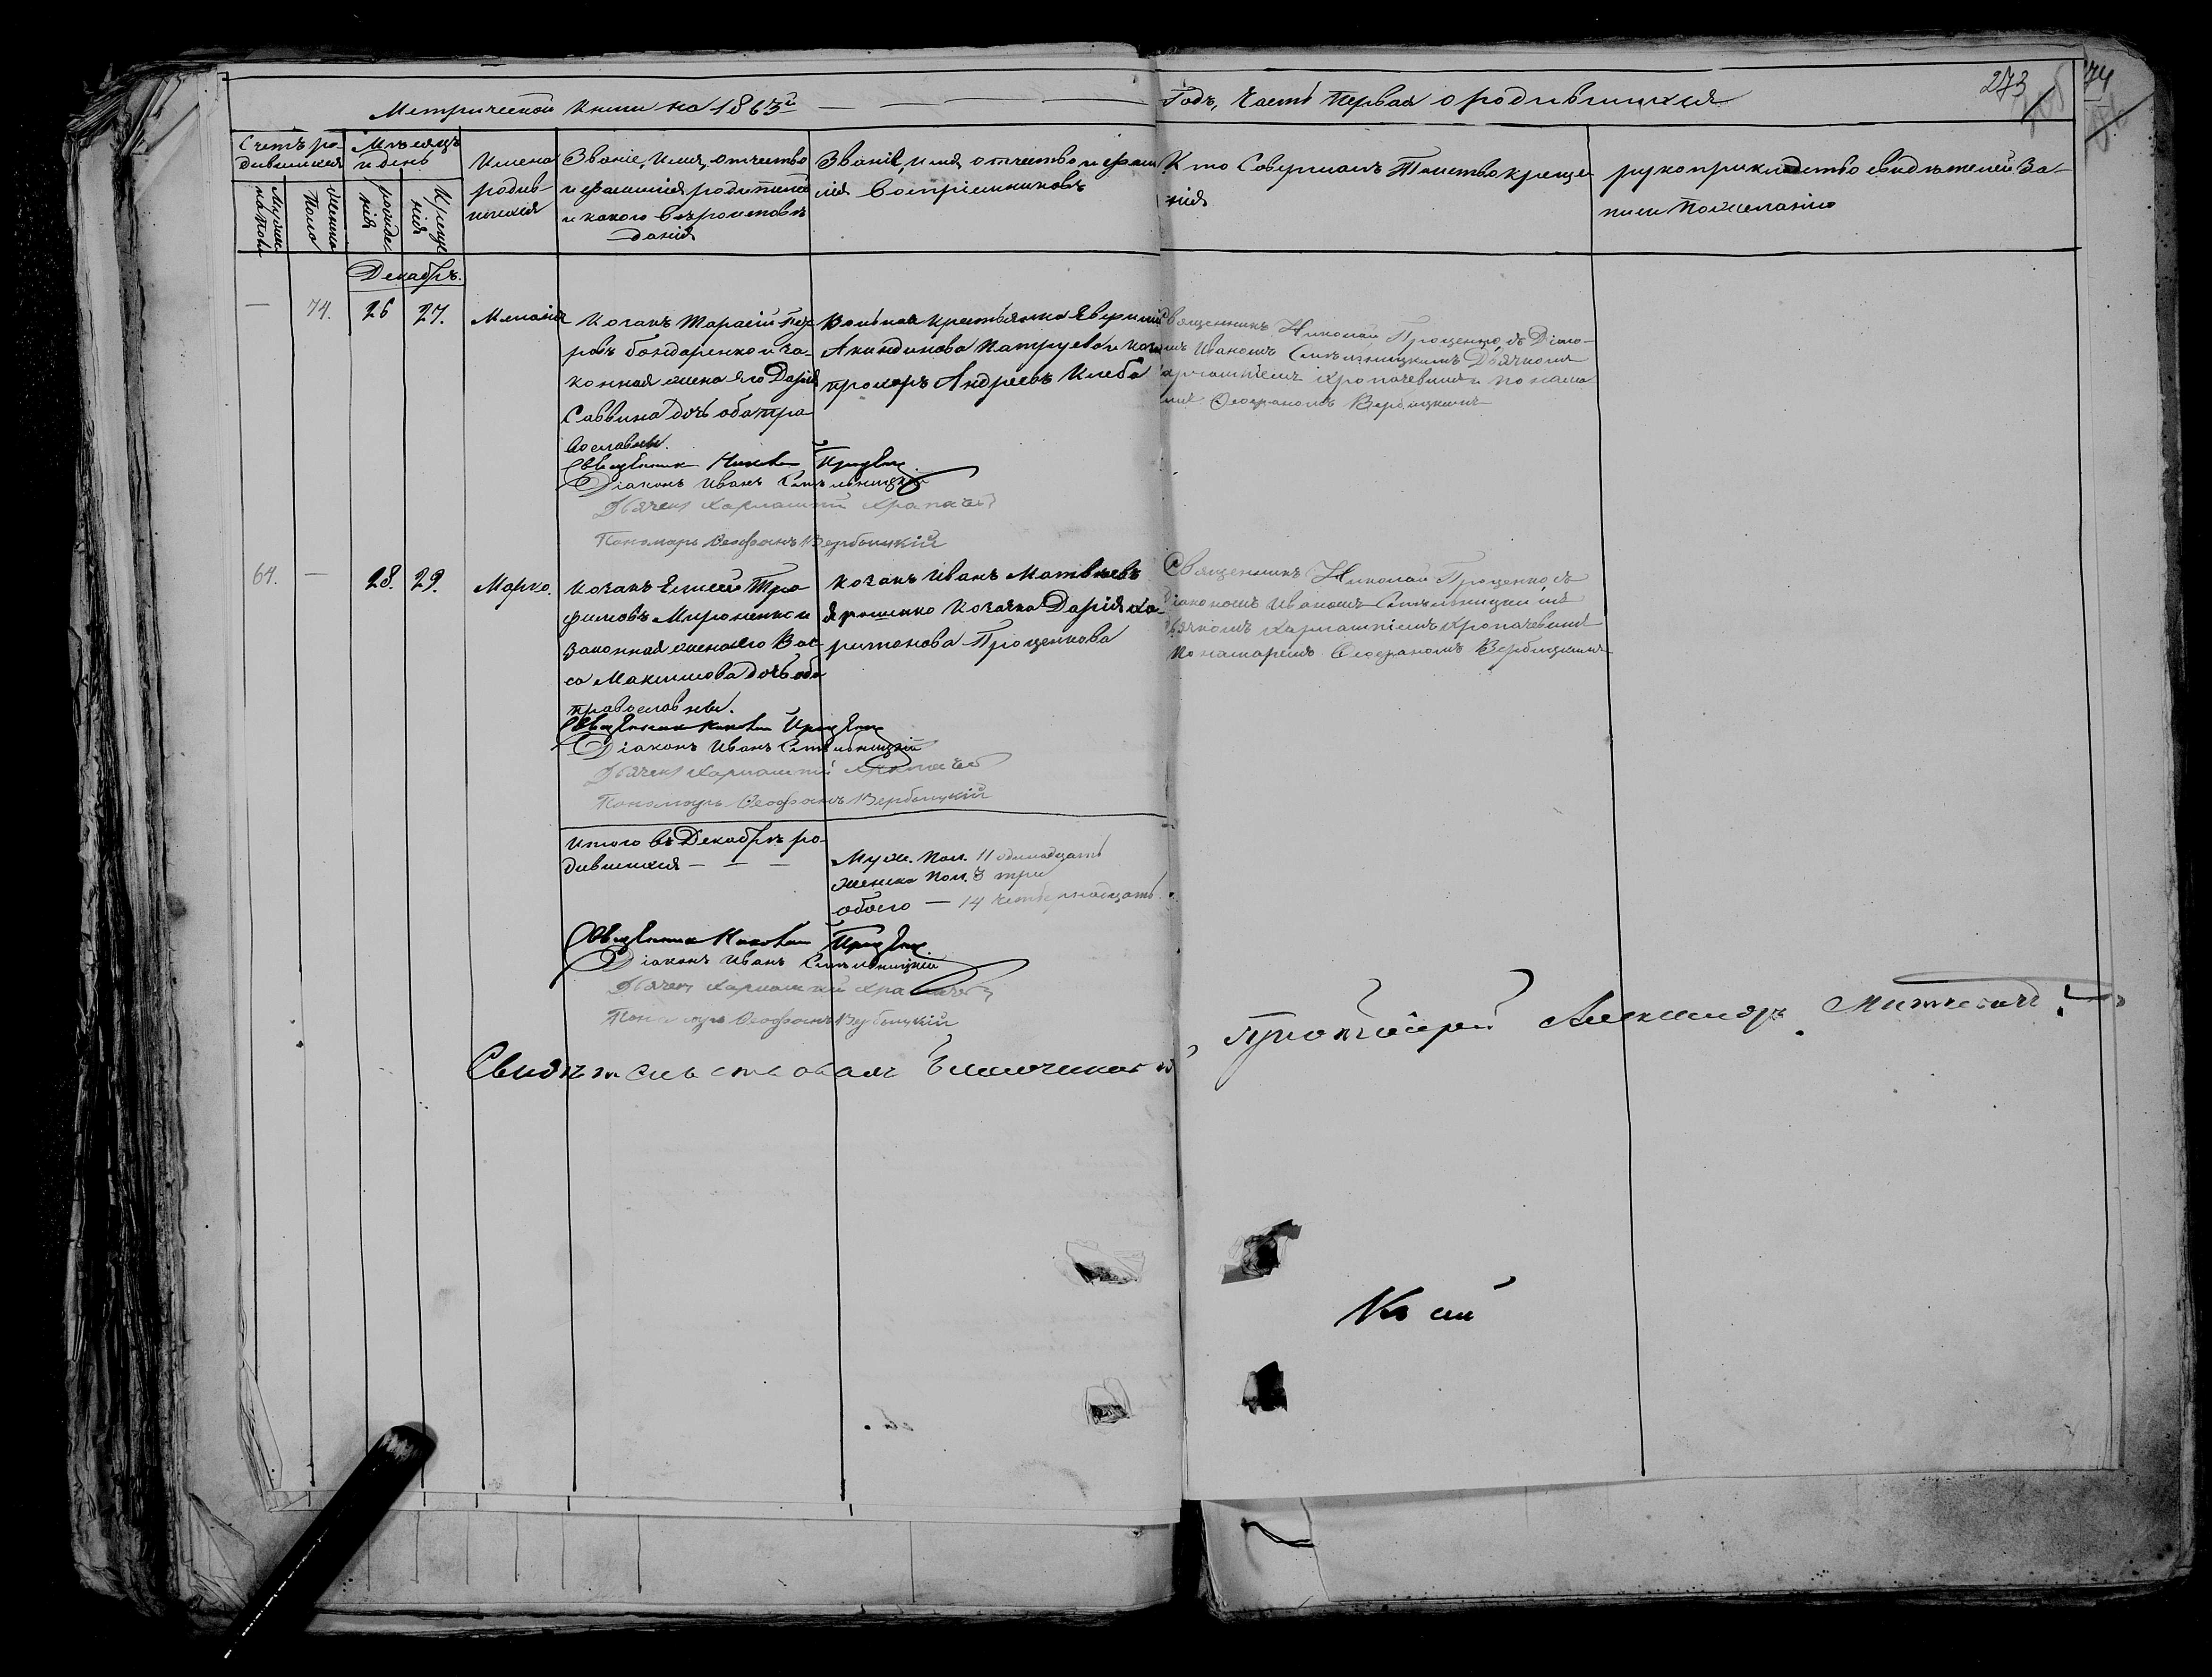 Метрической Книги на 1863й
Годъ, Часть Первая о родившихся
273
Счетъ ро-
дившихся
Мѣсяцъ
и день
Имена
родив-
шихся
Званіе, Имя, отчество
и фамилія родителей
и какого вѣроисповѣ
данія
Званіе, Имя отчество и фами
лія Воспріемниковъ
Кто Совершалъ Таинство креще
нія
рукоприкладство свидѣтелей За-
писи По желанію
Мужес
ка Пола
Женска
Пола
рожде
нія
Креще
нія
Декабрь.
— 74. 26 27. Меланія
Козакъ Тарасій Пет
ровъ бондаренко и За-
конная жена его Дарія
Саввина дочь оба пра
вославны.
Вольная крестьянка Евфимія
Акиндинова и Коза
Андреевъ Хлеба
Священникъ Николай Проценко, съ Діако-
номъ Иваномъ Дьячкомъ
Харлампіемъ Хропачевимъ и понама
Феофаномъ Вербицкимъ
Священникъ Николай Проценко
Діаконъ Иванъ
Дьячекъ Харлампій Хропачевъ
Пономарь Феофанъ Вербицкій
64. — 28. 29. Марко.
Козакъ Елисей Тро
фимовъ Мироненко и
Законная жена его Вас
са Максимова дочь оба
православны.
Козакъ Иванъ Матвѣевъ
Ярошенко Козачка Дарія Ха-
ритонова Проценкова
Священникъ Николай Проценко, съ
Діакономъ Иваномъ
Дьячкомъ Харлампіемъ Хропачевимъ
Понамаремъ Феофаномъ Вербицкимъ
Священникъ Николай Проценко
Діаконъ Иванъ
Дьячекъ Харлампій Хропачевъ
Пономарь Феофанъ Вербицкій
Итого въ Декабрѣ ро-
дившихся — — —
Муж. Пол. 11 одинадцать
женска Пол. 3 три
обоего — 14 четырнадцать.
Священникъ Николай Проценко
Діаконъ Иванъ
Дьячекъ Харлампій Хропачевъ
Пономарь Феофанъ Вербицкій
Свидѣтельствовалъ Благочинный
Протоіерей Александръ
Къ сей